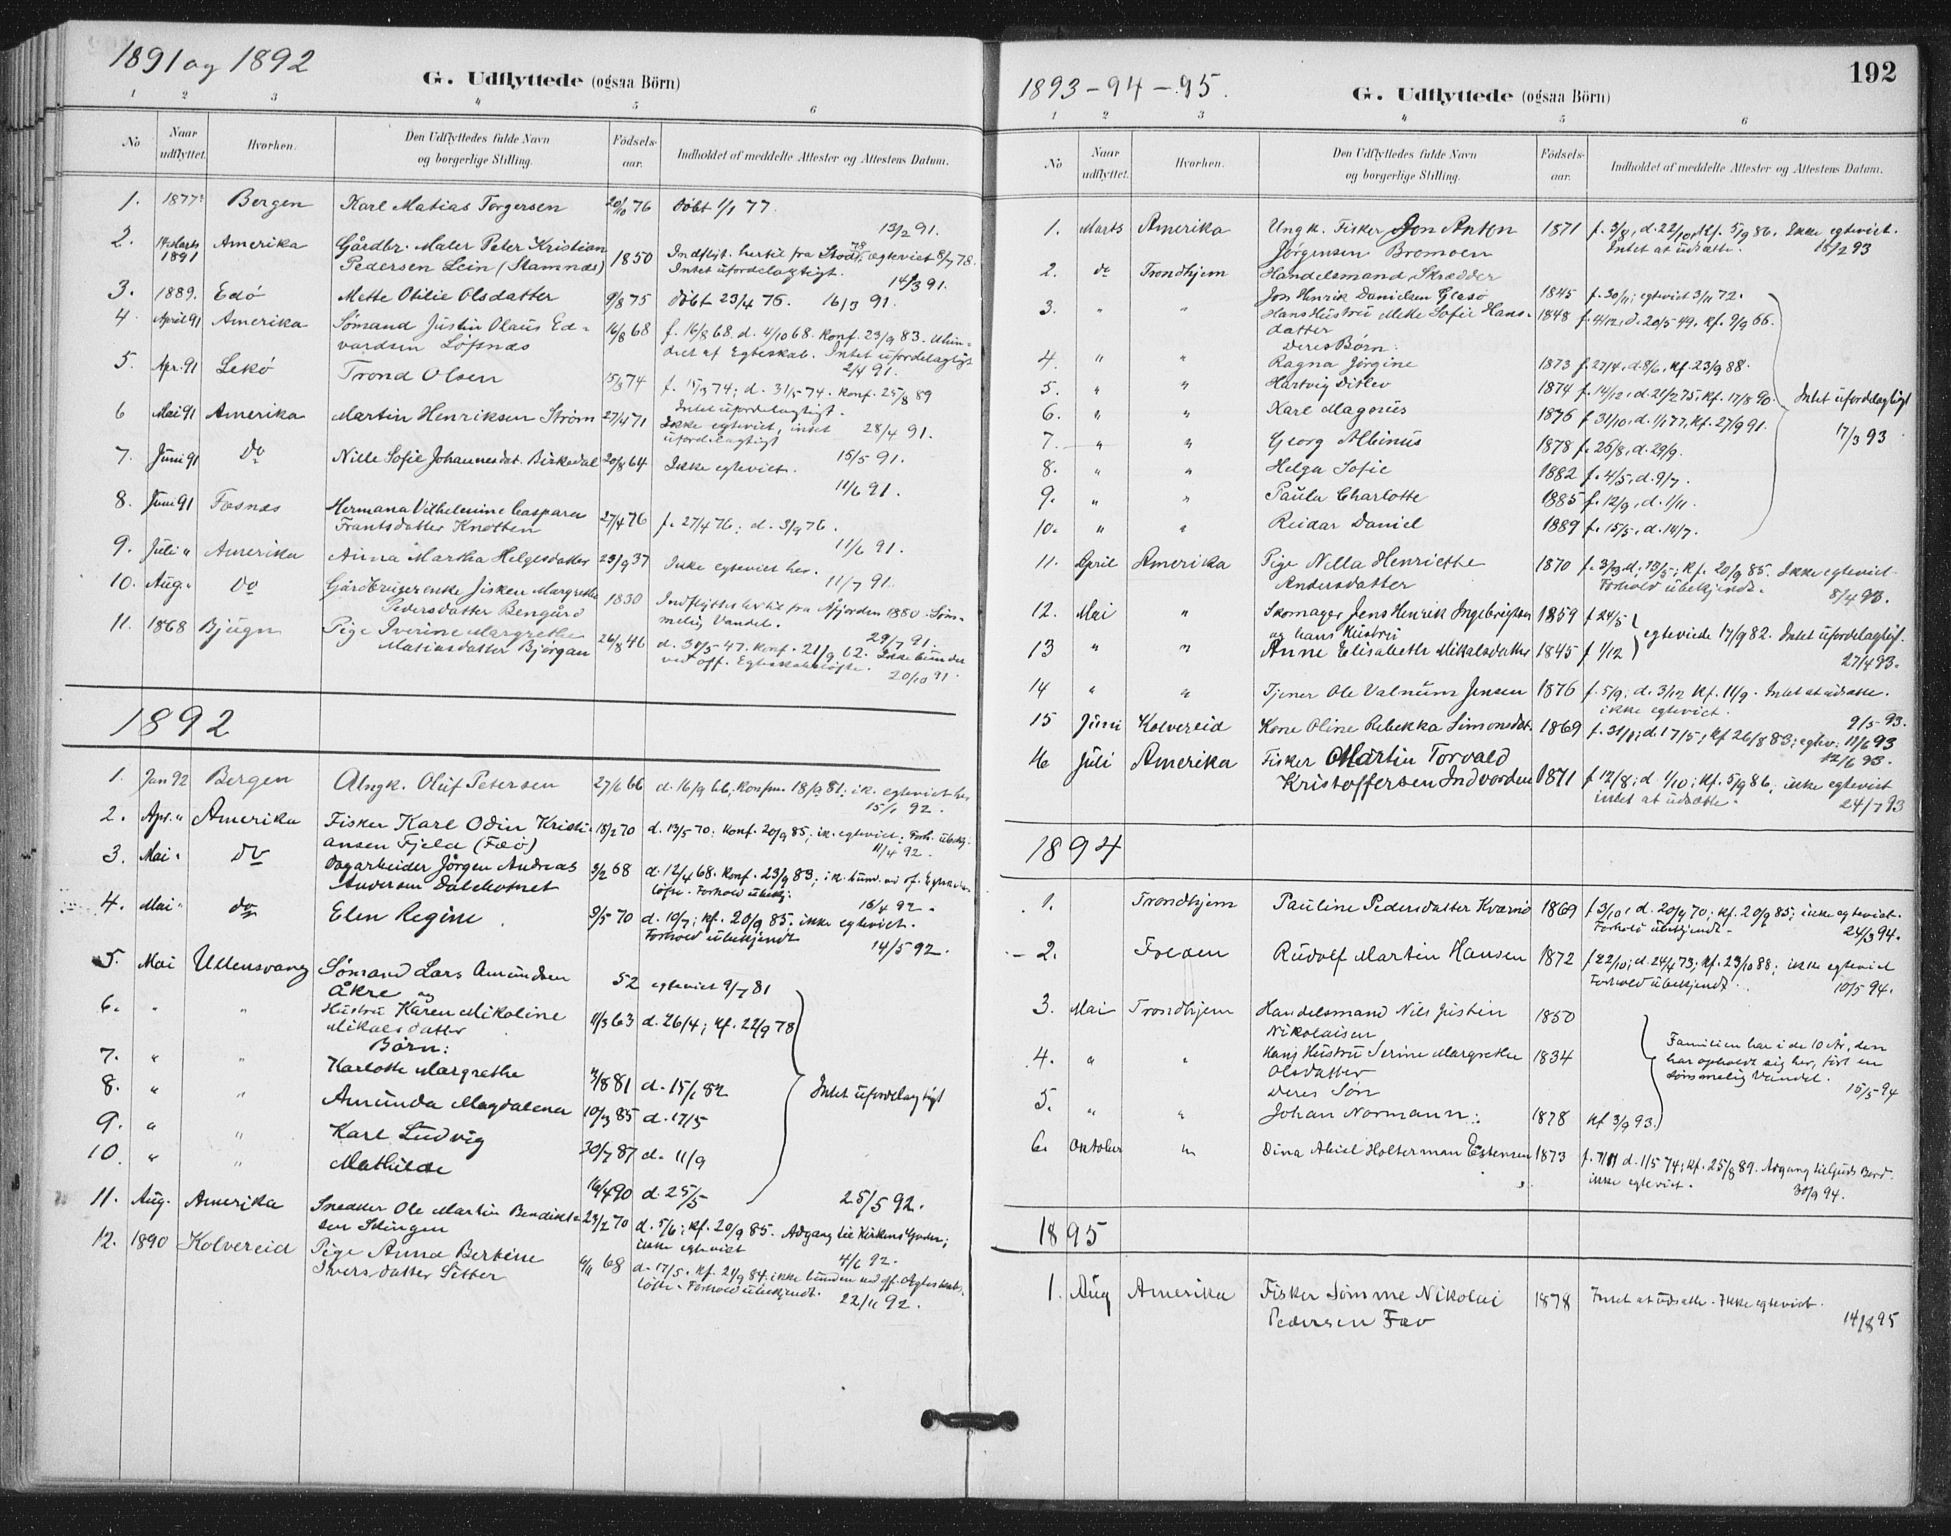 1891 og 1892
G. Udflyttede (ogsaa Börn)
1 2 3 4 5 6
No
Naar udflyttet.
Hvorhen.
Den Udflyttedes fulde Navn og borgerlige Stilling.
Födsels-aar.
Indholdet af meddelte Attester og Attestens Datum.
1. 1877 Bergen Karl Matias Torgersen 20/10 76 Döbt 1/1 77.
13/2 91.
2. 14 Marts 1891 Amerika Gårdbr. Maler Peter Kristian
Pedersen Lein (Stamnæs) 1850 Indflyt. hertil fra Stod 78, egteviet 8/7 78.
Intet ufordelagtigt.
14/3 91.
3. 1889. Edö Mette Otilie Olsdatter 9/8 75 döbt 23/4 76. 16/3 91.
4 April 91 Amerika Sömand Justin Olaus Ed-
vardsen Löfsnæs 16/8 68 f. 16/8 68. d. 4/10 68. Konf. 23/9 83. Uhin-
dret af Egteskab. Intet ufordelagtigt
2/4 91.
5. Apr. 91 Lekö Trond Olsen 15/3 74 f. 15/3 74; d. 31/5 74. Konf. 25/8 89
Intet ufordelagtigt.
28/4 91.
6 Mai 91 Amerika Martin Henriksen Ström 27/4 71 Ikke egteviet, intet
ufordelagtigt
15/5 91.
7. Juni 91 Do Nille Sofie Johannesdat. Birkedal 20/8 64 Ikke egteviet.
11/6 91.
8. Juni 91 Fosnæs Hermana Vilhelmine Caspara
Frantsdatter Knotten 27/4 76 f. 27/4 76; d. 3/9 76.
11/6 91.
9. Juli " Amerika Anna Martha Helgesdatter 23/9 37 Ikke egteviet her.
11/7 91.
10. Aug. " Do Gårdbrugerenke Jisken Margrethe
Pedersdatter Bengård 1830 Indflyttet hertil fra Åfjorden 1880. Söm-
melig Vandel.
29/7 91.
11. 1868 Bjugn Pige Iverine Margrethe
Matiasdatter Bjørgan 26/8 46 d. 30/5 47. Konf. 21/9 62. Ikke bunden
ved off. Egteskabslöfte.
20/10 91.
1892
1. Jan 92 Bergen Oluf Petersen 27/6 66 d. 16/9 66; Konfm. 18/9 81; ik. egteviet her
15/1 92.
2. Apr. " Amerika Fisker Karl Odin Kristi-
ansen Fjeld (Fæö) 18/2 70 d. 13/5 70. Konf. 20/9 85; ik. egteviet; Forh. ubekj.
11/4 92.
3. Mai " do Dagarbeider Jörgen Andreas
Andersen Dalebotnet 9/2 68 d. 12/4 68. Konf. 23/9 83; ik. bund. ved of. Egteskabs-
löfte. Forhold ubekj.
16/4 92.
4. Mai " do Elen Regine 9/5 70 d. 10/7; kf. 20/9 85. ikke egteviet.
Forhold ubekjendt
14/5 92.
5. Mai Ullensvang Sömand Lars Amundsen
Åkre og 52 egteviet 9/7 81
6. " " Hustru Karen Mikoline
Mikalsdatter 11/3 63 d. 26/4; kf. 22/9 78
Börn:
7. " " Karlotte Margrethe 11/8 81 d. 15/1 82 Intet ufordelagtigt
8. " " Amunda Magdalena 10/3 85 d. 17/5
9. " " Karl Ludvig 30/7 87 d. 11/9
10. " " Mathilde 16/4 90 d. 25/5
25/5 92.
11. Aug. Amerika Snedker Ole Martin Bendikt-
sen Selingen 23/2 70 d. 5/6; kf. 20/9 85. Adgang til Kirkens Goder;
ikke egteviet
4/6 92.
12. 1890 Kolvereid Pige Anna Berbine
Iversdatter Sitter 6/11 68 d. 17/5. Kf. 21/9 84. ikke bunden ved off. Egteskabs-
löfte. Forhold ubekjendt.
22/11 92.
192
1893-94-95.
G. Udflyttede (ogsaa Börn)
1 2 3 4 5 6
No
Naar udflyttet.
Hvorhen.
Den Udflyttedes fulde Navn og borgerlige Stilling.
Födsels-aar.
Indholdet af meddelte Attester og Attestens Datum.
1. Marts Amerika Ungk. Fisker Jon Anton
Jørgensen Bromoen 1871 f. 3/8, d. 22/10, kf. 5/9 86. Ikke egteviet.
Intet at udsætte. 18/2 93
2. do Trondhjem Handelsmand, Skrædder
Jon Henrik Danielsen Glasö 1845 f. 30/11; egteviet 3/11 72.
3. " " Hans Hustru Mette Sofie Hans-
datter 1848 f. 4/12, d. 20/5 49. kf. 9/9 66.
Deres Børn:
4. " " Ragna Jørgine 1873 f. 27/4, d. 8/6, kf. 23/9 88.
5. " " Hartvig Ditlev 1874 f. 14/12, d. 21/2 75; kf. 17/8 90. Intet ufordelagtigt
6. " " Karl Magnus 1876 f. 31/10, d. 1/1 77, kf. 27/9 91.
17/3 93
7. " " Georg Albinus 1878 f. 26/8, d. 29/9.
8. " " Helga Sofie 1882 f. 4/5, d. 9/7.
9. " " Paula Charlotte 1885 f. 12/9, d. 1/11.
10. " " Reidar Daniel 1889 f. 15/5, d. 14/7.
11. April Amerika Pige Nella Henriette
Andersdatter 1870 f. 3/3, d. 13/5; kf. 20/9 85. Ikke egteviet.
Forhold ubekjendt. 8/4 93.
12. Mai " Skomager Jens Henrik Ingebrigtsen 1859 f 24/5
og hans Hustru egteviede 17/9 82. Intet ufordelagtigt.
13 " " Anne Elisabeth Mikalsdatter 1845 f 1/12
27/4 93.
14 " " Tjener Ole Valnum Jensen 1876 f. 5/9; d. 3/12 kf. 11/9. Intet at udsætte.
ikke egteviet.
9/5 93.
15 Juni Kolvereid Kone Oline Rebekka Simonsdat. 1869 f. 31/1; d. 17/5; kf 26/8 83; egtev. 11/6 93
12/6 93.
16 Juli Amerika Fisker Martin Torvald
Kristoffersen Indvorden 1871 f 12/8; d. 1/10; kf. 5/9 86; ikke egteviet
intet at udsætte.
24/7 93
1894
1. Trondhjem Pauline Pedersdatter Kværnö 1869 f 3/10, d. 20/4 70; kf. 20/9 85; ikke egteviet.
Forhold ubekjendt.
24/3 94.
2. Folden Rudolf Martin Hansen 1872 f 22/10; d. 24/4 73; kf. 23/10 88; ikke egteviet
Forhold ubekjendt.
10/5 94.
3. Mai Trondhjem Handelsmand Nils Justin
Nikolaisen 1850
4. " " Hans Hustru Serine Margrethe
Olsdatter 1834 Familien har i de 10 År, den
har opholdt sig her, fört en
sömmelig Vandel.
15/5 94
Deres Søn
5. " " Johan Normann: 1878 kf 3/9 93.
6. Oktober " Dina Abiel Holterman Estensen 1873 f. 7/11 d. 1/5 74; kf. 25/8 89. Adgang til Guds Bord.
ikke egteviet.
30/9 94.
1895
1. Aug Amerika Fisker Sømme Nikolai
Pedersen Fæö 1878 Intet at udsætte. Ikke egteviet.
14/8 95